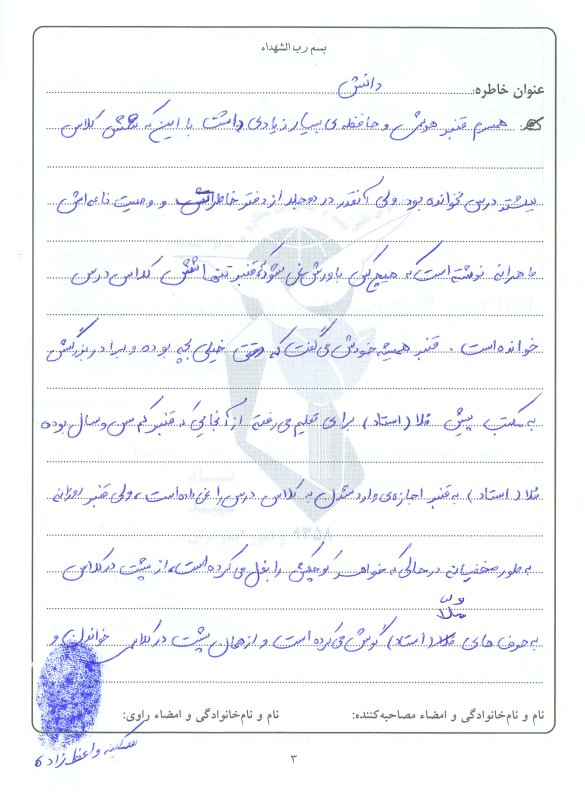 بسم رب الشهداء
عنوان خاطره: دانش
همسرم قنبر هوش و حافظه ی بسیار زیادی داشت با این که شش کلاس
بیشتر درس نخوانده بود ولی آنقدر در دو جلد از دفتر خاطراتش و وصیت نامه اش
ماهرانه نوشته است که هیچ کس باورش نمی شود که قنبر تنها شش کلاس درس
خوانده است . قنبر همیشه خودش می گفت که وقتی خیلی بچه بوده و برادر بزرگش
به مکتب پیش ملا (استاد) برای تعلیم می رفته از آنجایی که قنبر کم سن و سال بوده
ملا (استاد) به قنبر اجازه ی وارد شدن به کلاس درس را نمی داده است ، ولی قنبر روزانه
به طور مخفیانه در حالی که خواهر کوچکش را بغل می کرده است، از پشت در کلاس
به حرف های ملا (استاد) گوش می کرده است و از همان پشت در کلاس خواندن و
نام و نام‌خانوادگی و امضاء مصاحبه‌کننده: نام و نام‌خانوادگی و امضاء راوی:
سکینه واعظ زاده
۳